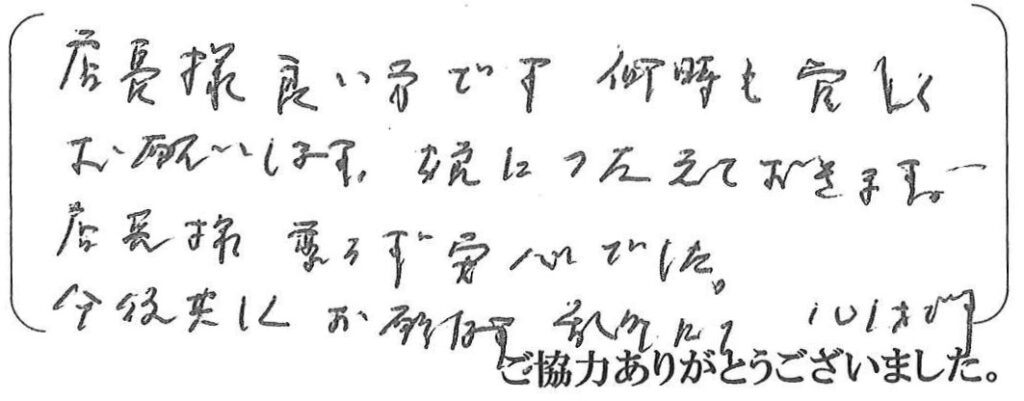 店長様良い方です 何時も宜しく
お願いします。 に つたえておきます。
店長様 変らず安心でした。
今後共しく お願います
ご協力ありがとうございました。